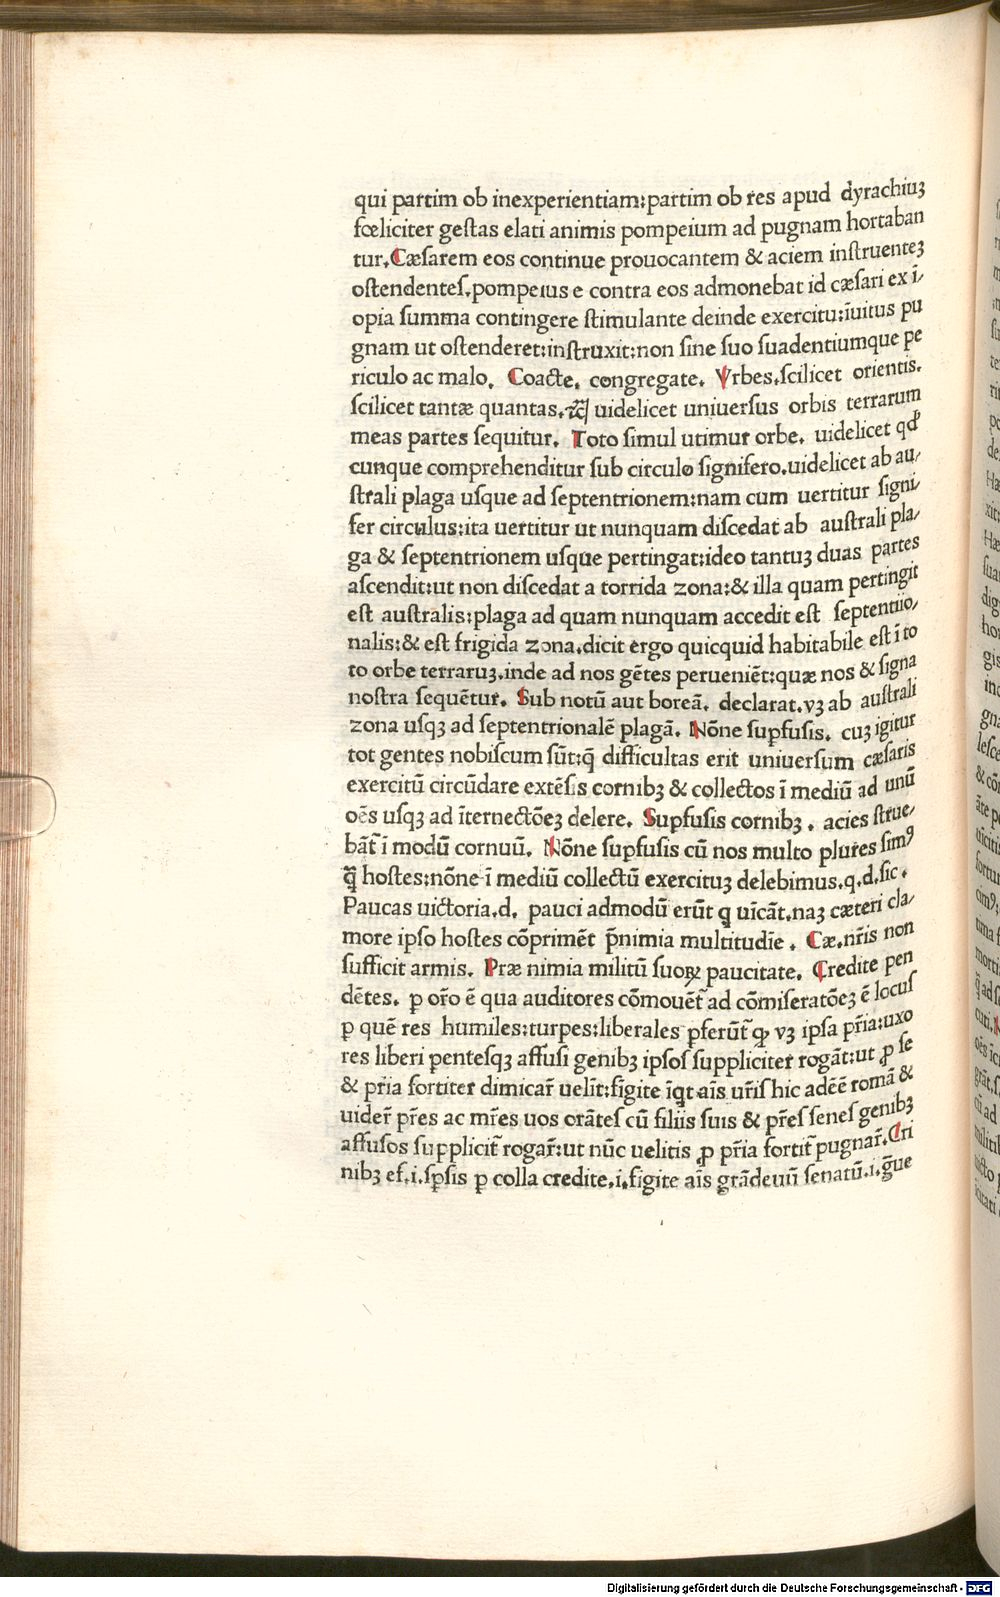 qui partim ob inexperientiam:partim ob res apud dyrachiuꝫ
fœliciter geſtas elati animis pompeium ad pugnam hortaban
tur.Cæſarem eos continue prouocantem & aciem inſtruenteꝫ
oſtendenteſ.pompeius e contra eos admonebat id cæſari ex ī/
opia ſumma contingere ſtimulante deinde exercitu:īuitus pu
gnam ut oſtenderet:inſtruxit:non ſine ſuo ſuadentiumque pe
riculo ac malo. Coacte. congregate. Vrbes.ſcilicet orientis.
ſcilicet tantæ quantas. uidelicet uniuerſus orbis terrarum
meas partes ſequitur. Toto ſimul utimur orbe. uidelicet qd̛
cunque comprehenditur ſub circulo ſignifero.uidelicet ab au/
ſtrali plaga uſque ad ſeptentrionem:nam cum uertitur ſigni/
fer circulus:ita uertitur ut nunquam diſcedat ab auſtrali pla/
ga & ſeptentrionem uſque pertingat:ideo tantuꝫ duas partes
aſcendit:ut non diſcedat a torrida zona:& illa quam pertingit
eſt auſtralis:plaga ad quam nunquam accedit eſt ſeptentrio/
nalis:& eſt frigida zona.dicit ergo quicquid habitabile eſt ī to
to orbe terraruꝫ.inde ad nos gētes perueniēt:quæ nos & ſigna
noſtra ſequētur. Sub notū aut boreā. declarat.vꝫ ab auſtrali
zona uſqꝫ ad ſeptentrionalē plagā. Nōne ſupfuſis. cuꝫ igitur
tot gentes nobiſcum ſūt:q̄ difficultas erit uniuerſum cæſaris
exercitū circūdare extēſis cornibꝫ & collectos ī mediū ad unū
oēs uſqꝫ ad īternectōeꝫ delere. Supfuſis cornibꝫ . acies ſtrue/
bāt̄ ī modū cornuū. Nōne ſupfuſis cū nos multo plures ſimꝰ
q̄ꝫ hoſtes:nōne ī mediū collectū exercituꝫ delebimus.q.d.ſic.
Paucas uictoria.d. pauci admodū erūt q uīcāt.naꝫ cæteri cla/
more ipſo hoſtes cōprimēt p̄nimia multitudīe . Cæ.nr̄is non
ſufficit armis. Præ nimia militū ſuoꝝ paucitate. Credite pen
dētes. ꝑ or̄o ē qua auditores cōmouēt̄ ad cōmiſeratōeꝫ ē locuſ
ꝑ quē res humiles:turpes:liberales ꝓferūt̄ ꝙ vꝫ ipſa pr̄ia:uxo
res liberi pentesqꝫ affuſi genibꝫ ipſoſ ſuppliciter rogāt:ut ꝓ ſe
& pr̄ia fortiter dimicar̄ uelīt:figite īqt aīs ur̄iſ hic adēē romā &
uider̄ pr̄es ac mr̄es uos orāteſ cū filiis ſuis & pr̄eſ ſeneſ genibꝫ
affuſos ſupplicit̄ rogar̄:ut nūc uelitis ꝓ pr̄ia fortit̄ pugnar̄.Cri
nibꝫ ef.i.ſpſis ꝑ colla credite.i.figite aīs grādeuū ſenatū.i.ḡue
Digitalisierung gefördert durch die Deutsche Forschungsgemeinschaft - DFG